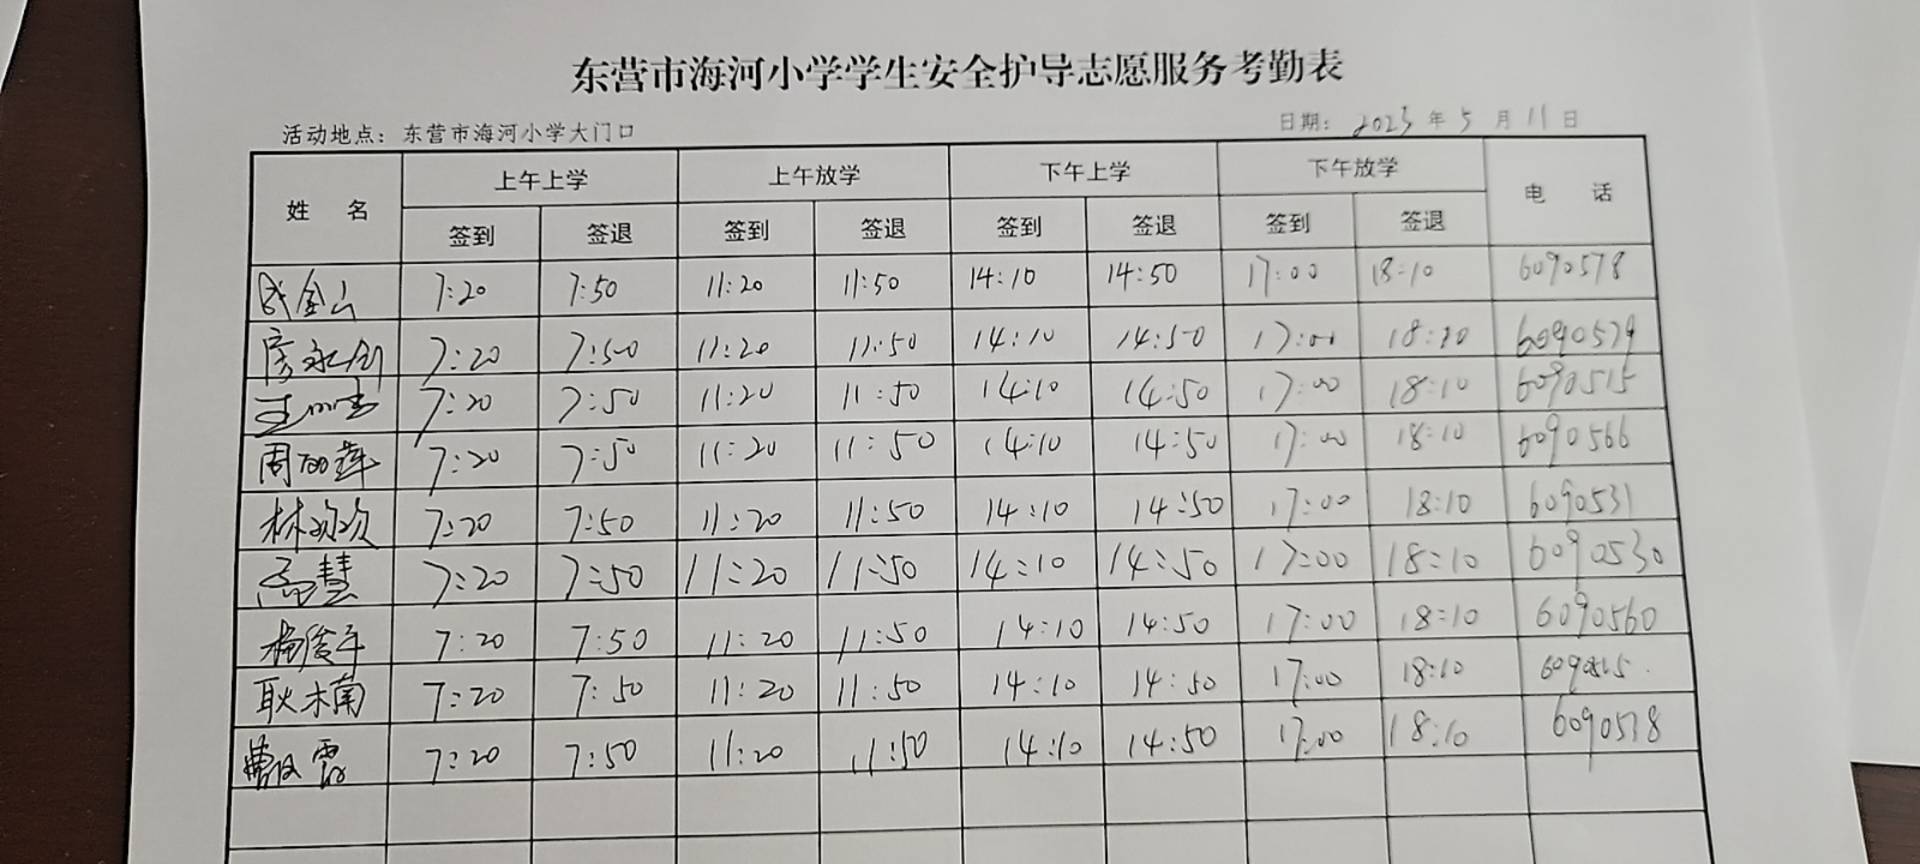 东营市海河小学学生安全护导志愿服务考勤表
活动地点：东营市海河小学大门口 日期：2023年5月11日
姓 名 上午上学 上午放学 下午上学 下午放学 电 话
签到 签退 签到 签退 签到 签退 签到 签退
金山 7:20 7:50 11:20 11:50 14:10 14:50 17:00 18:10 6090578
7:20 7:50 11:20 11:50 14:10 14:50 17:00 18:10 6090579
王 7:20 7:50 11:20 11:50 14:10 14:50 17:00 18:10 6090515
周 萍 7:20 7:50 11:20 11:50 14:10 14:50 17:00 18:10 6090566
林欢欢 7:20 7:50 11:20 11:50 14:10 14:50 17:00 18:10 6090531
高慧 7:20 7:50 11:20 11:50 14:10 14:50 17:00 18:10 6090530
杨俊平 7:20 7:50 11:20 11:50 14:10 14:50 17:00 18:10 6090560
耿木菊 7:20 7:50 11:20 11:50 14:10 14:50 17:00 18:10
霞 7:20 7:50 11:20 11:50 14:10 14:50 17:00 18:10 6090578